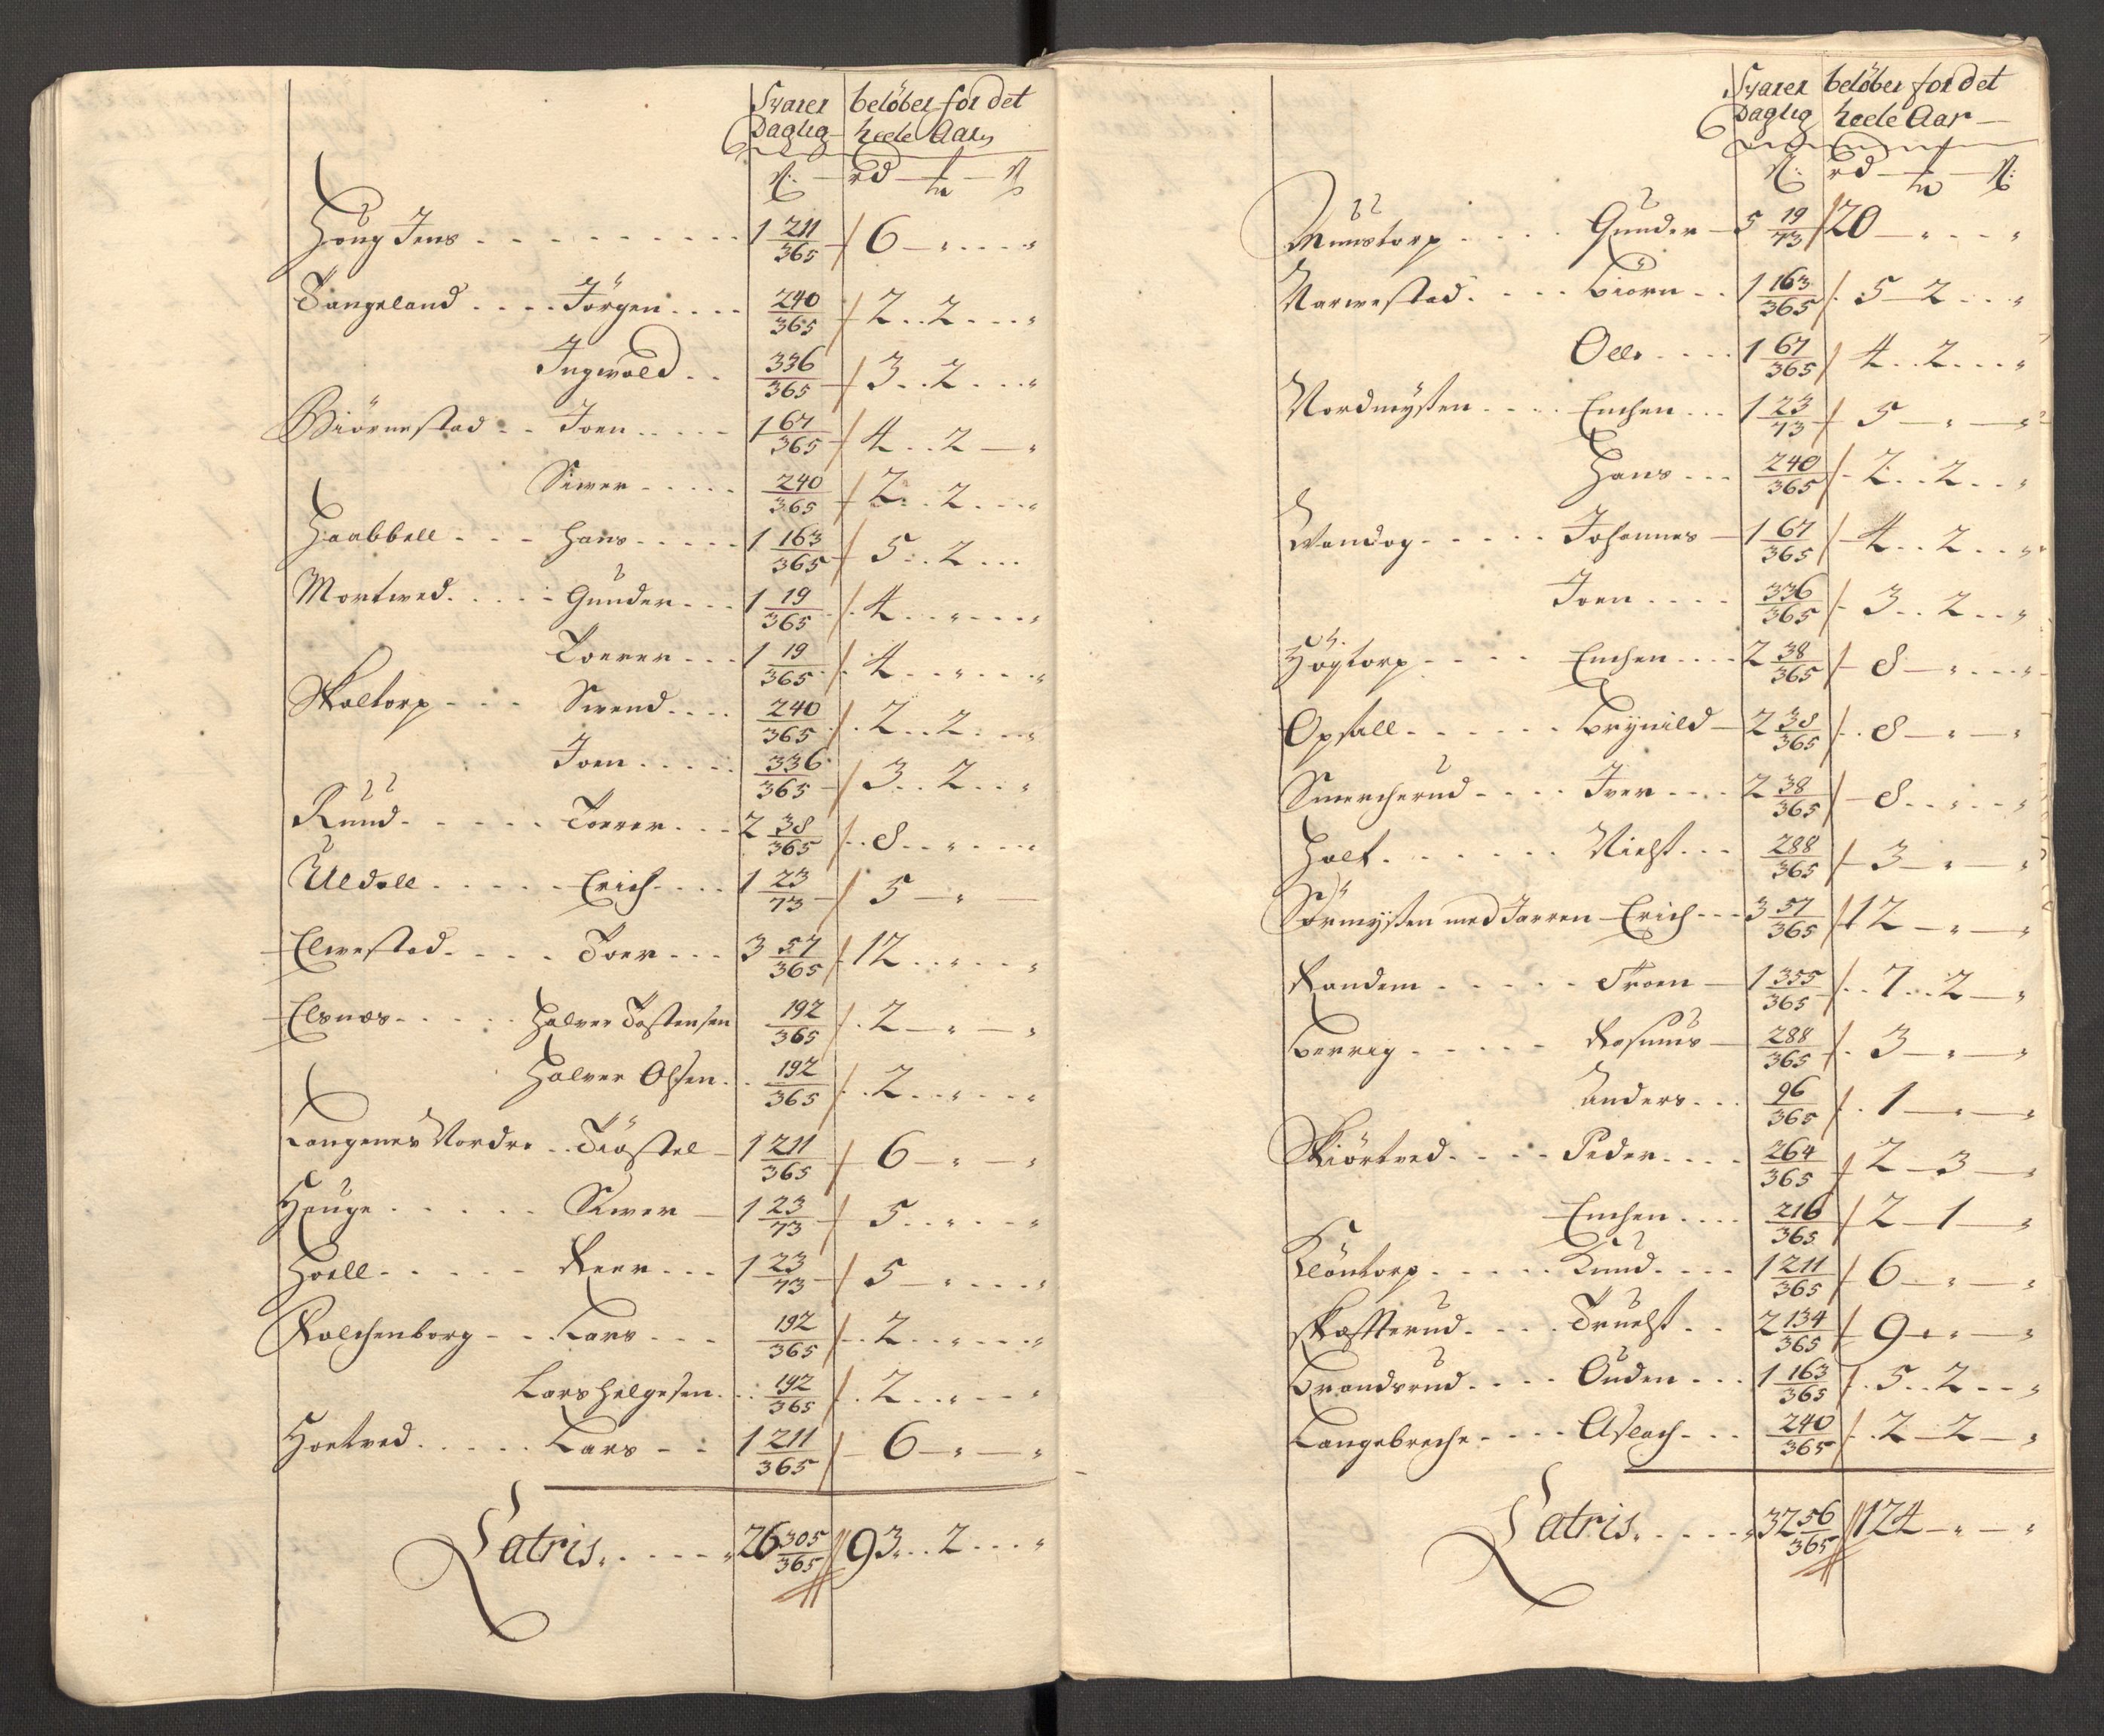 Svarer beløber for det
Daglig heele Aar
ß: rd ort ß
Houg Jens 1 211/365 6 " "
Tangeland Jörgen 240/365 2 2 "
Ingwold 336/365 3 2 "
Biörnestad Joen 1 67/365 4 2 "
Siwer 240/365 2 2 "
Haabbell Hans 1 163/365 5 2
Mortwed Gunder 1 19/365 4 " "
Toerer 1 19/365 4 " "
Skoltorp Swend 240/365 2 2 "
Joen 336/365 3 2 "
Ruud Toerer 2 38/365 8 " "
Uldall Erich 1 23/73 5 "
Elwestad Toer 3 57/365 12 " "
Elsnæs Halver Tostensen 192/365 2 " "
Halver Olsen 192/365 2 " "
Langenes Nordre Kiöstel 1 211/365 6 " "
Houge Siwer 1 23/73 5 " "
Hoell Reer 1 23/73 5 " "
Rolchenborg Lars 192/365 2 " "
Lars Helgesen 192/365 2 " "
Hortved Lars 1 211/365 6 " "
Latris 26 305/365 93 2 "
Svarer beløber for det
Daglig heele Aar
ß: rd ort ß:
Muustorp Gunder 5 19/73 20 " "
Narwestad Biörn 1 163/365 5 2 "
Olle 1 67/365 4 2 "
Nordmysten Enchen 1 23/73 5 " "
Hans 240/365 2 2 "
Wandog Johannes 1 67/365 4 2 "
Joen 336/365 3 2 "
Högtorp Enchen 2 38/365 8 " "
Opsall Brynild 2 38/365 8 " "
Smercherud Iver 2 38/365 8 " "
Holt Nielß 288/365 3 " "
Sörmysten med Jarren Erich 3 57/365 12 " "
Randem Troen 1 355/365 7 2 "
Berrig Rasmus 288/365 3 " "
Anders 96/365 1 " "
Skiörtved Peder 264/365 2 3 "
Enchen 216/365 2 1 "
Klöntorp Knud 1 211/365 6 " "
Skofterud Truelß 2 134/365 9 " "
Brandsrud Ouden 1 163/365 5 2 "
Langebreche Aslach 240/365 2 2 "
Latris 32 56/365 124 " "